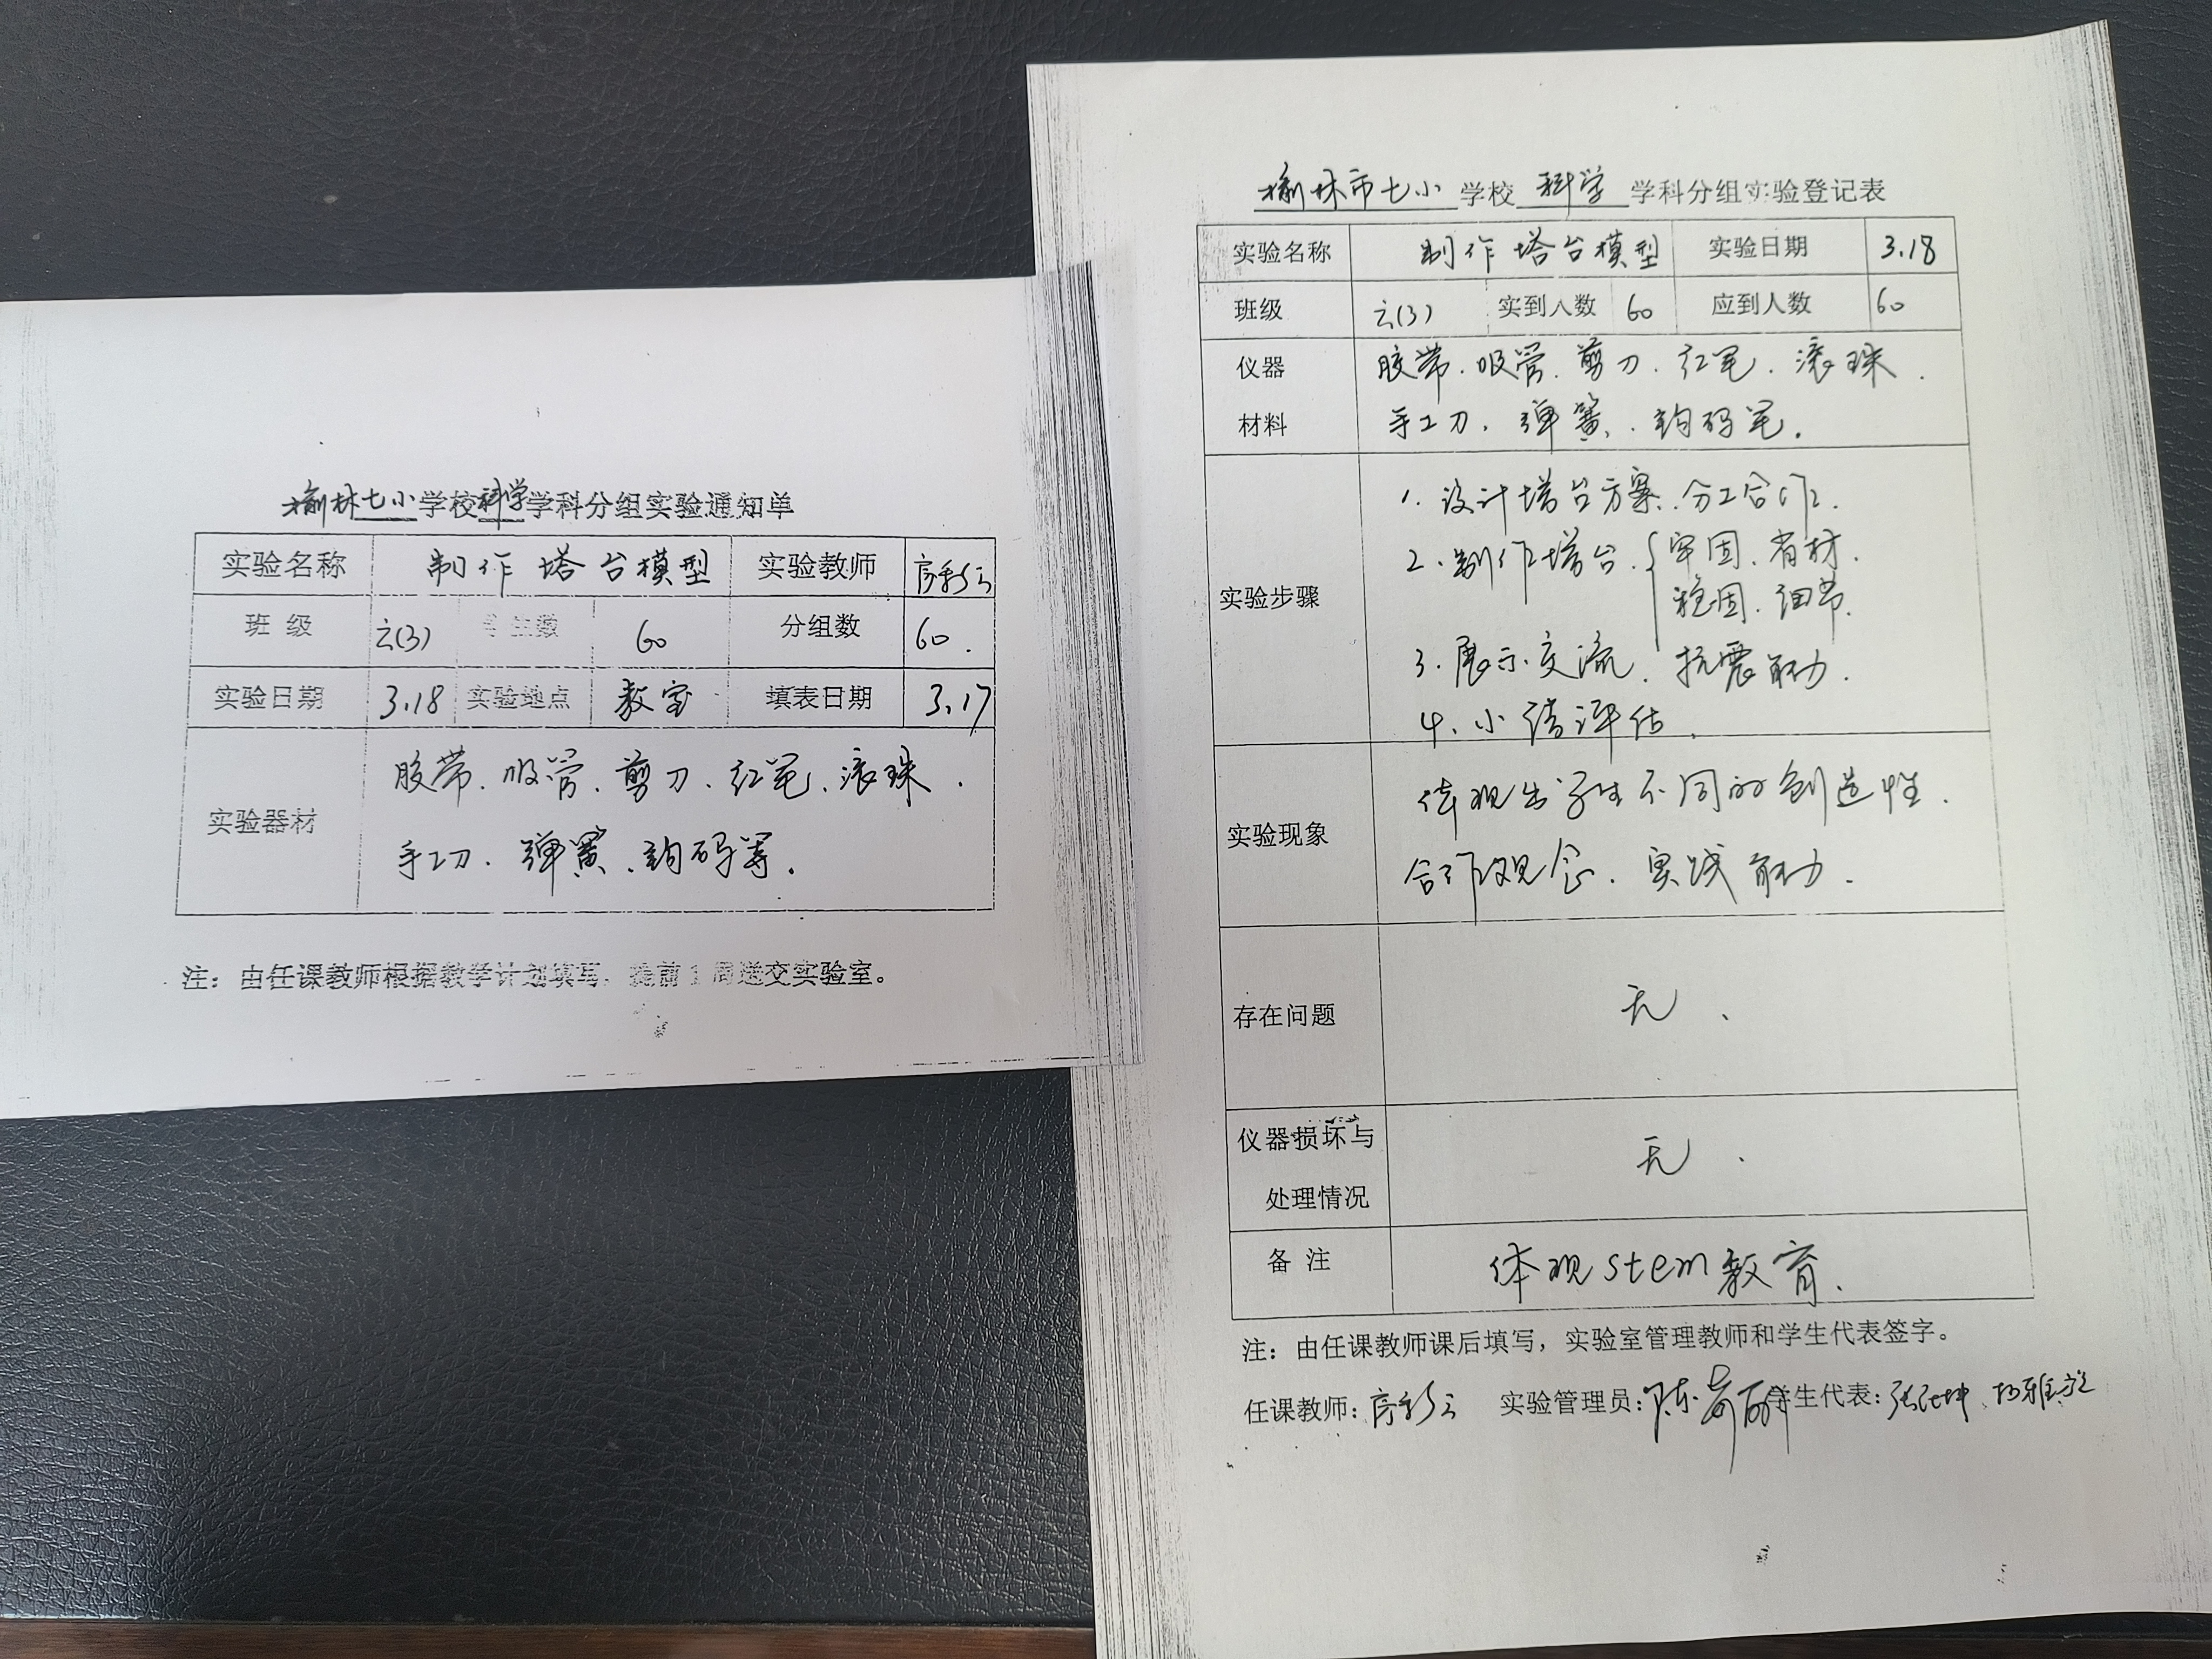 榆林七小学校科学学科分组实验通知单
实验名称 制作塔台模型 实验教师
班 级 六(3) 学生数 60 分组数 60.
实验日期 3.18 实验地点 教室 填表日期 3.17
实验器材
胶带、吸管、剪刀、红笔、滚珠.
手工刀、弹簧、钩码等.
注：由任课教师根据教学计划填写，提前1周送交实验室。
榆林市七小 学校 科学 学科分组实验登记表
实验名称 制作塔台模型 实验日期 3.18
班级 六(3) 实到人数 60 应到人数 60
仪器 胶带、吸管、剪刀、红笔、滚珠.
材料 手工刀、弹簧、钩码笔.
实验步骤
1.设计塔台方案.分工合作.
2.制作塔台.{牢固、省材.
稳固、细节.
3.展示交流.抗震能力.
4.小结评估.
实验现象
体现出学生不同的创造性.
合作观念.实践能力.
存在问题 无.
仪器损坏与
处理情况 无.
备 注 体现stem教育.
注：由任课教师课后填写，实验室管理教师和学生代表签字。
任课教师: 实验管理员: 学生代表: